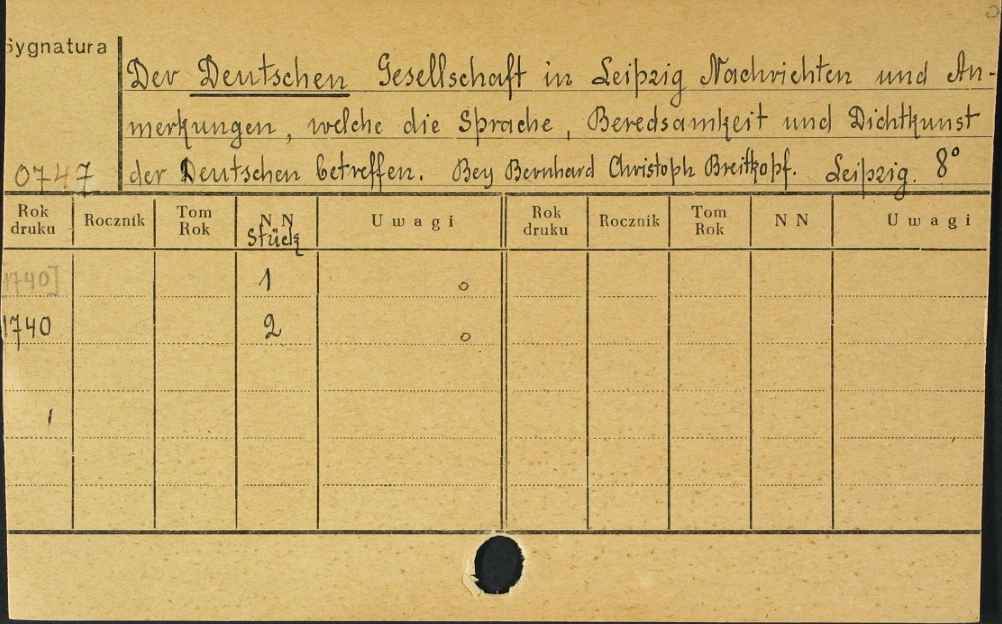 Sygnatura
Der Deutschen Gesellschaft in Leipzig Nachrichten und An-
merkungen, welche die Sprache, Beredsamkeit und Dichtkunst
0747 der Deutschen betreffen. Bey Bernhard Christoph Breitkopf. Leipzig. 8°
Rok druku Rocznik Tom Rok N N Stück Uwagi Rok druku Rocznik Tom Rok N N Uwagi
1740] 1 o
1740 2 o